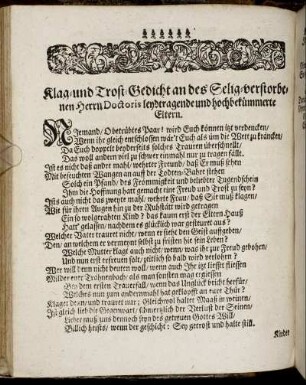 Klag/und Trost-Gedicht an des Selig-verstorbe-
nen Herrn Doctoris leydtragende und hochbekümmerte
Eltern.
NIemand/ Obetrübtes Paar! wird Euch können itzt verdencken/
Wenn ihr gleich entschlossen wär't Euch als um die Wett zu kräncken/
Da Euch doppelt beyderseits solches Trauren überschnellt/
Das wol andern viel zu schwer einmahl nur zu tragen fällt.
Ist es nicht das ander mahl/ wehrter Freund/ daß Er muß sehen
Mit befeuchten Wangen an auff der Todten-Bahre stehen
Solch ein Pfand/ des Frömmigkeit und beliebter Tugendschein
Ihm die Hoffnung hatt gemacht einer Freud und Trost zu seyn?
Ists auch nicht das zweyte mahl/ wehrte Frau/ daß Sie muß klagen/
Wie für ihren Augen hin zu der Ruhstätt wird getragen
Ein so wolgerathten Kind? das kaum erst der Eltern Hauß
Hatt' gelassen/ nachdem es glücklich war gesteuret aus?
Welcher Vater trauret nicht/ wenn er siehet den Geist auffgeben/
Den/ an welchem er vermeynt selbst zu frischen hit sein Leben?
Welche Mutter klagt auch nicht/ wenn/ was ihr zur Freud gebohren/
Und nun erst recht ist folt/ zeitlich so bald wird verlohrn?
Wer will denn nicht deuten woll/ wenn auch Ihr itzt lieset fliessen
Milder eure Trähnenbach/ als man sonsten mag ergiessen
Bey dem ersten Trauerfall/ wenn das Unglück bricht herfür/
Welches nun zum andernmahl hat geklopfft an eure Thür?
Klaget denn/ und trauret nur; Gleichwol haltet Maaß im weinen/
Ist gleich lieb die Gegenwart/ schmertzlich der Verlust der Seinen/
Lieber muß uns dennoch seyn des getreuen Gottes Will/
Billich heists/ wenn der geschieht: Sey getrost und halte still.
Kinder